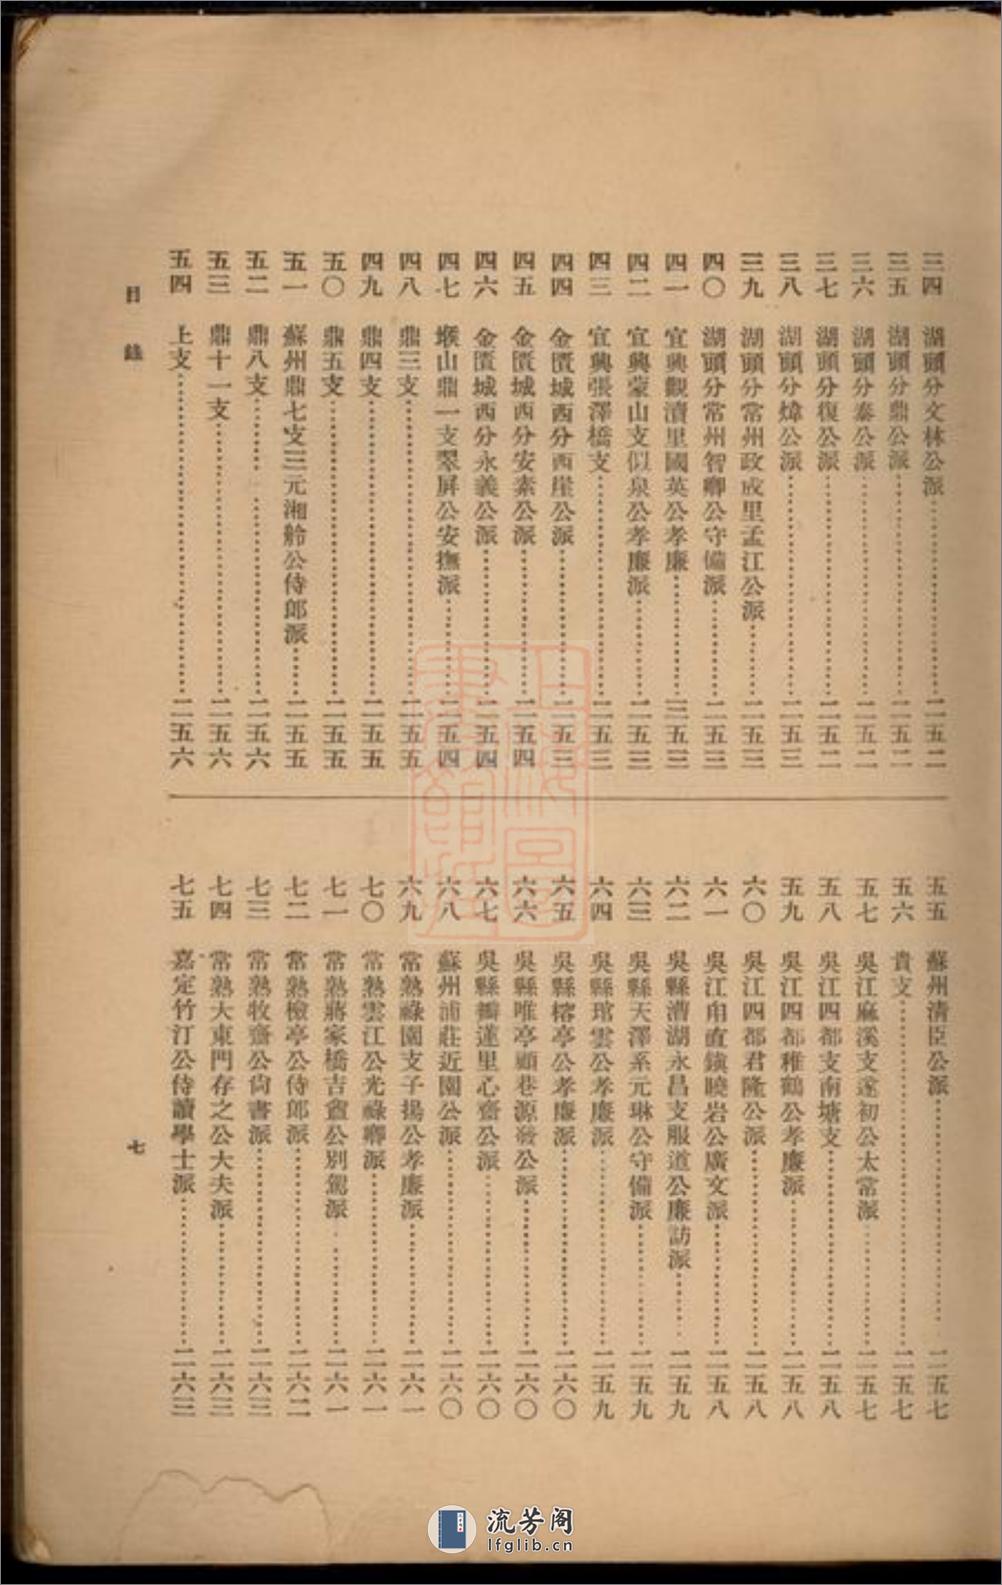 三四 湖頭分文林公派……二五二
三五 湖頭分鼎公派……二五二
三六 湖頭分泰公派……二五二
三七 湖頭分復公派……二五二
三八 湖頭分煒公派……二五三
三九 湖頭分常州政成里孟江公派……二五三
四〇 湖頭分常州智卿公守備派……二五三
四一 宜興觀瀆里國英公孝廉……二五三
四二 宜興蒙山支似泉公孝廉派……二五三
四三 宜興張澤橋支……二五三
四四 金匱城西分西崖公派……二五三
四五 金匱城西分安素公派……二五四
四六 金匱城西分永義公派……二五四
四七 堠山鼎一支翠屏公安撫派……二五四
四八 鼎三支……二五五
四九 鼎四支……二五五
五〇 鼎五支……二五五
五一 蘇州鼎七支三元湘舲公侍郎派……二五五
五二 鼎八支……二五六
五三 鼎十一支……二五六
五四 上支……二五六
五五 蘇州清臣公派……二五七
五六 貴支……二五七
五七 吳江麻溪支遂初公太常派……二五七
五八 吳江四都支南塘支……二五八
五九 吳江四都稚鶴公孝廉派……二五八
六〇 吳江四都君隆公派……二五八
六一 吳江甪直鎮曉岩公廣文派……二五八
六二 吳縣漕湖永昌支服道公廉訪派……二五九
六三 吳縣天澤系元琳公守備派……二五九
六四 吳縣琯雲公孝廉派……二五九
六五 吳縣榕亭公孝廉派……二六〇
六六 吳縣唯亭顧巷源發公派……二六〇
六七 吳縣瓣蓮里心齋公派……二六〇
六八 蘇州浦莊近園公派……二六〇
六九 常熟祿園支子揚公孝廉派……二六一
七〇 常熟雲江公光祿卿派……二六一
七一 常熟蔣家橋吉壼公別駕派……二六一
七二 常熟檢亭公侍郎派……二六二
七三 常熟牧齋公尙書派……二六三
七四 常熟大東門存之公大夫派……二六三
七五 嘉定竹汀公侍讀學士派……二六三
目錄
七
流芳阁
lfglib.cn